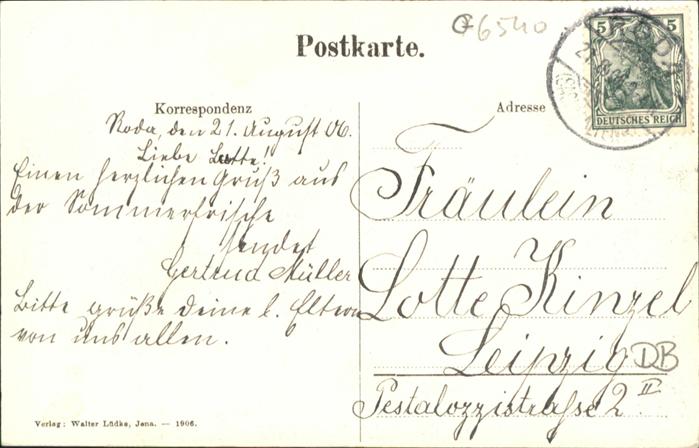 76540
Postkarte.
5 5
DEUTSCHES REICH
Korrespondenz
Roda, den 21. August 06.
Liebe Lotte!
Einen herzlichen Gruß aus
der Sommerfrische
sendet
Gertrud Müller
Bitte grüße deine l. Eltern
von uns allen.
Verlag: Walter Lüdke, Jena. — 1906.
Adresse
Fräulein
Lotte Kinzel
Leipzig
DB
Pestalozzistraße 2 II.